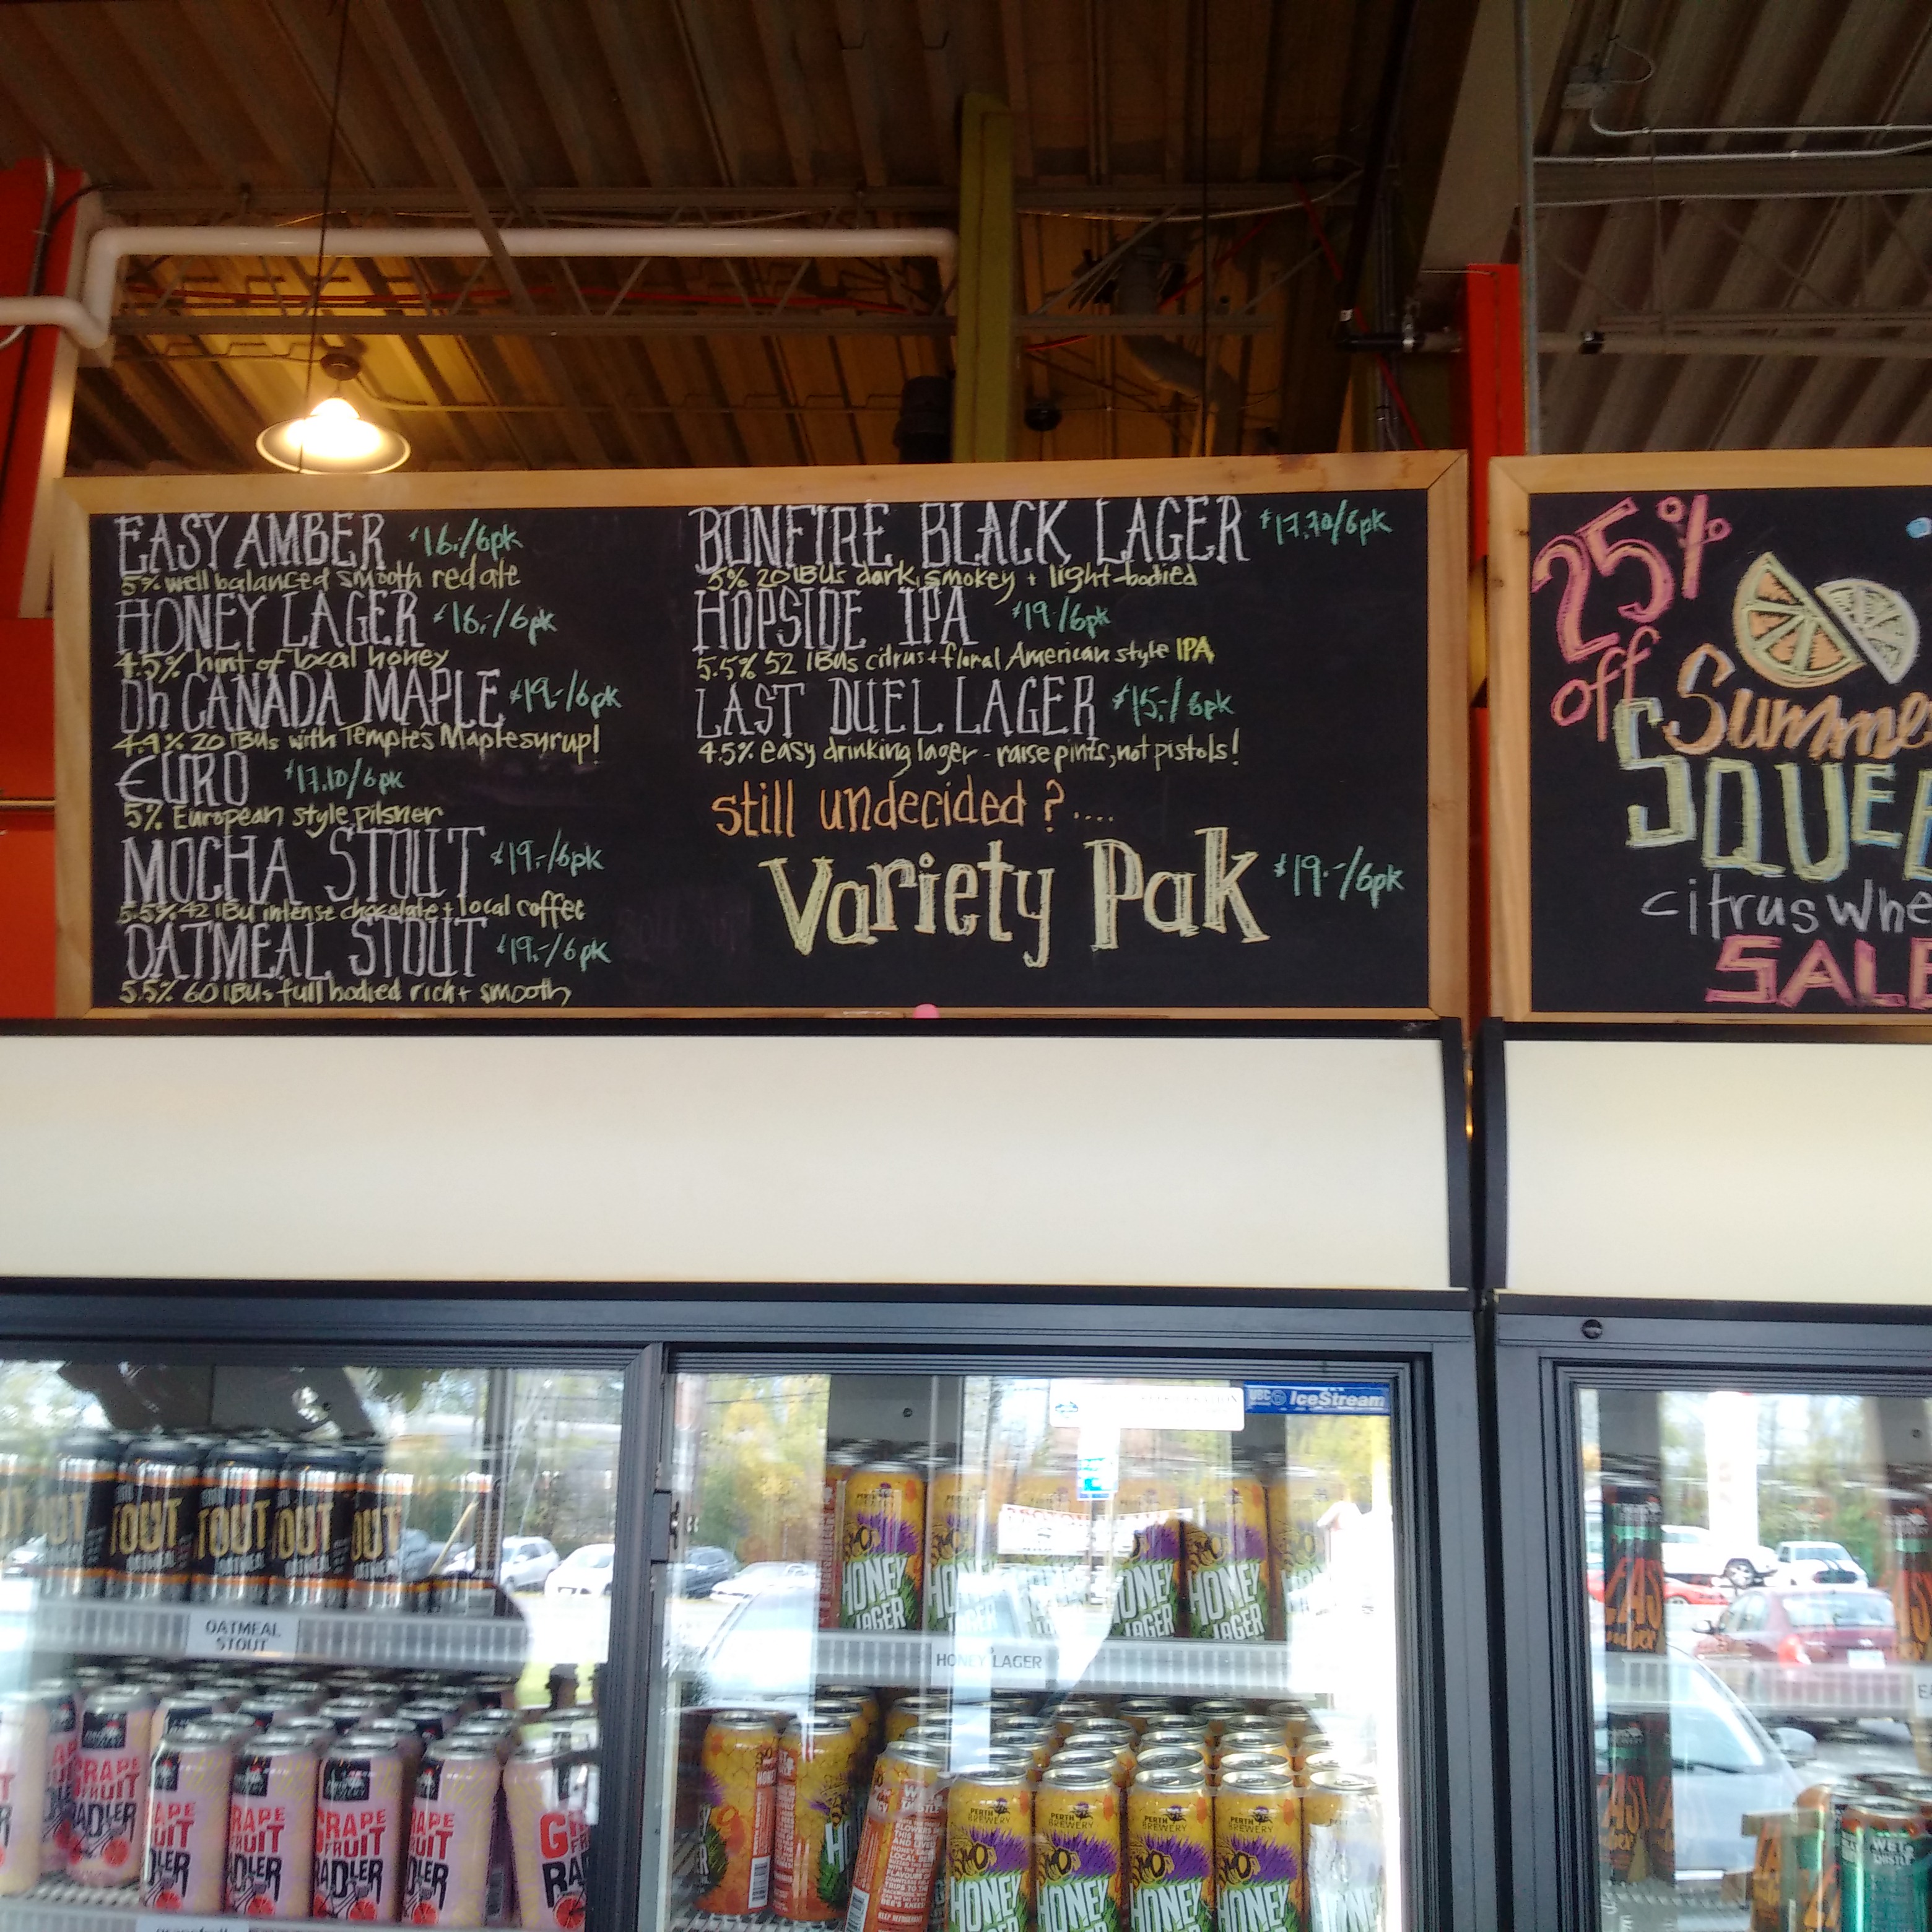 EASY AMBER $16.-/6pk
5% well balanced smooth red ale
HONEY LAGER $16.-/6pk
4.5% hint of local honey
Oh CANADA MAPLE $19.-/6pk
4.9% 20 IBUs with Temples Maple syrup!
EURO $17.10/6pk
5% European style pilsner
MOCHA STOUT $19.-/6pk
5.5% 42 IBU intense chocolate + local coffee
OATMEAL STOUT $19.-/6pk
5.5% 60 IBUs full bodied rich + smooth
BONFIRE BLACK LAGER $17.70/6pk
5% 20 IBUs dark, smokey + light-bodied
HOPSIDE IPA $19/6pk
5.5% 52 IBUs citrus + floral American style IPA
LAST DUEL LAGER $15.-/6pk
4.5% easy drinking lager - raise pints, not pistols!
still undecided ?....
Variety Pak $19.-/6pk
25%
off
Summe
SQUEE
citrus whe
SALE
UBC IceStream
OUT
TOUT
OUT
OUT
HONEY
LAGER
HONEY
LAGER
HONEY
LAGER
OATMEAL
STOUT
HONEY LAGER
GRAPE
FRUIT
RADLER
GRAPE
FRUIT
RADLER
PERTH
BREWERY
HONEY
PERTH
BREWERY
HONEY
PERTH
BREWERY
HONEY
PERTH
BREWERY
HONEY